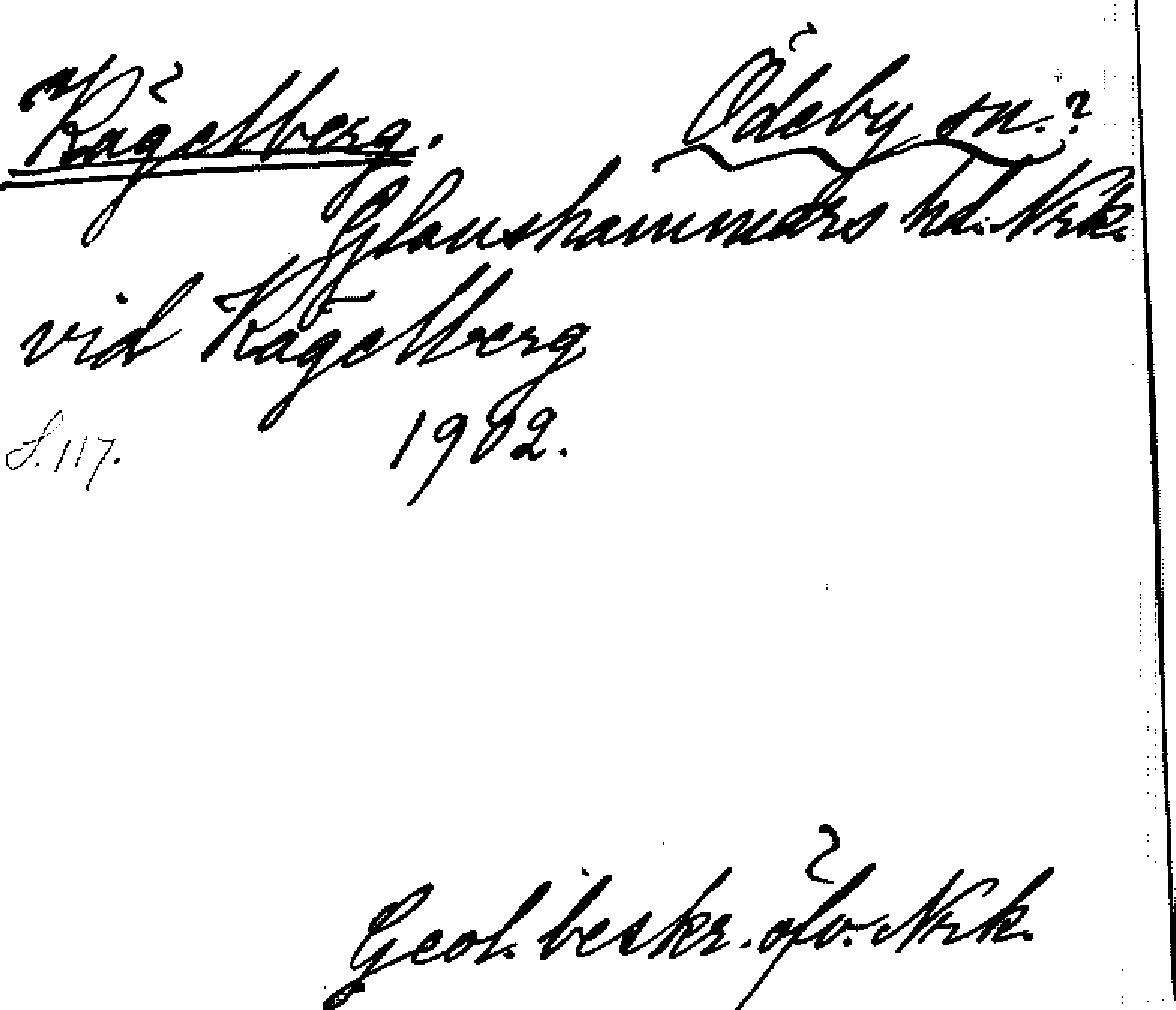 Kägelberg. Ödeby sn.?
Glanshammars hd. Nrk.
vid Kägelberg
S. 117. 1902.
Geol. beskr. öfv. Nrk.